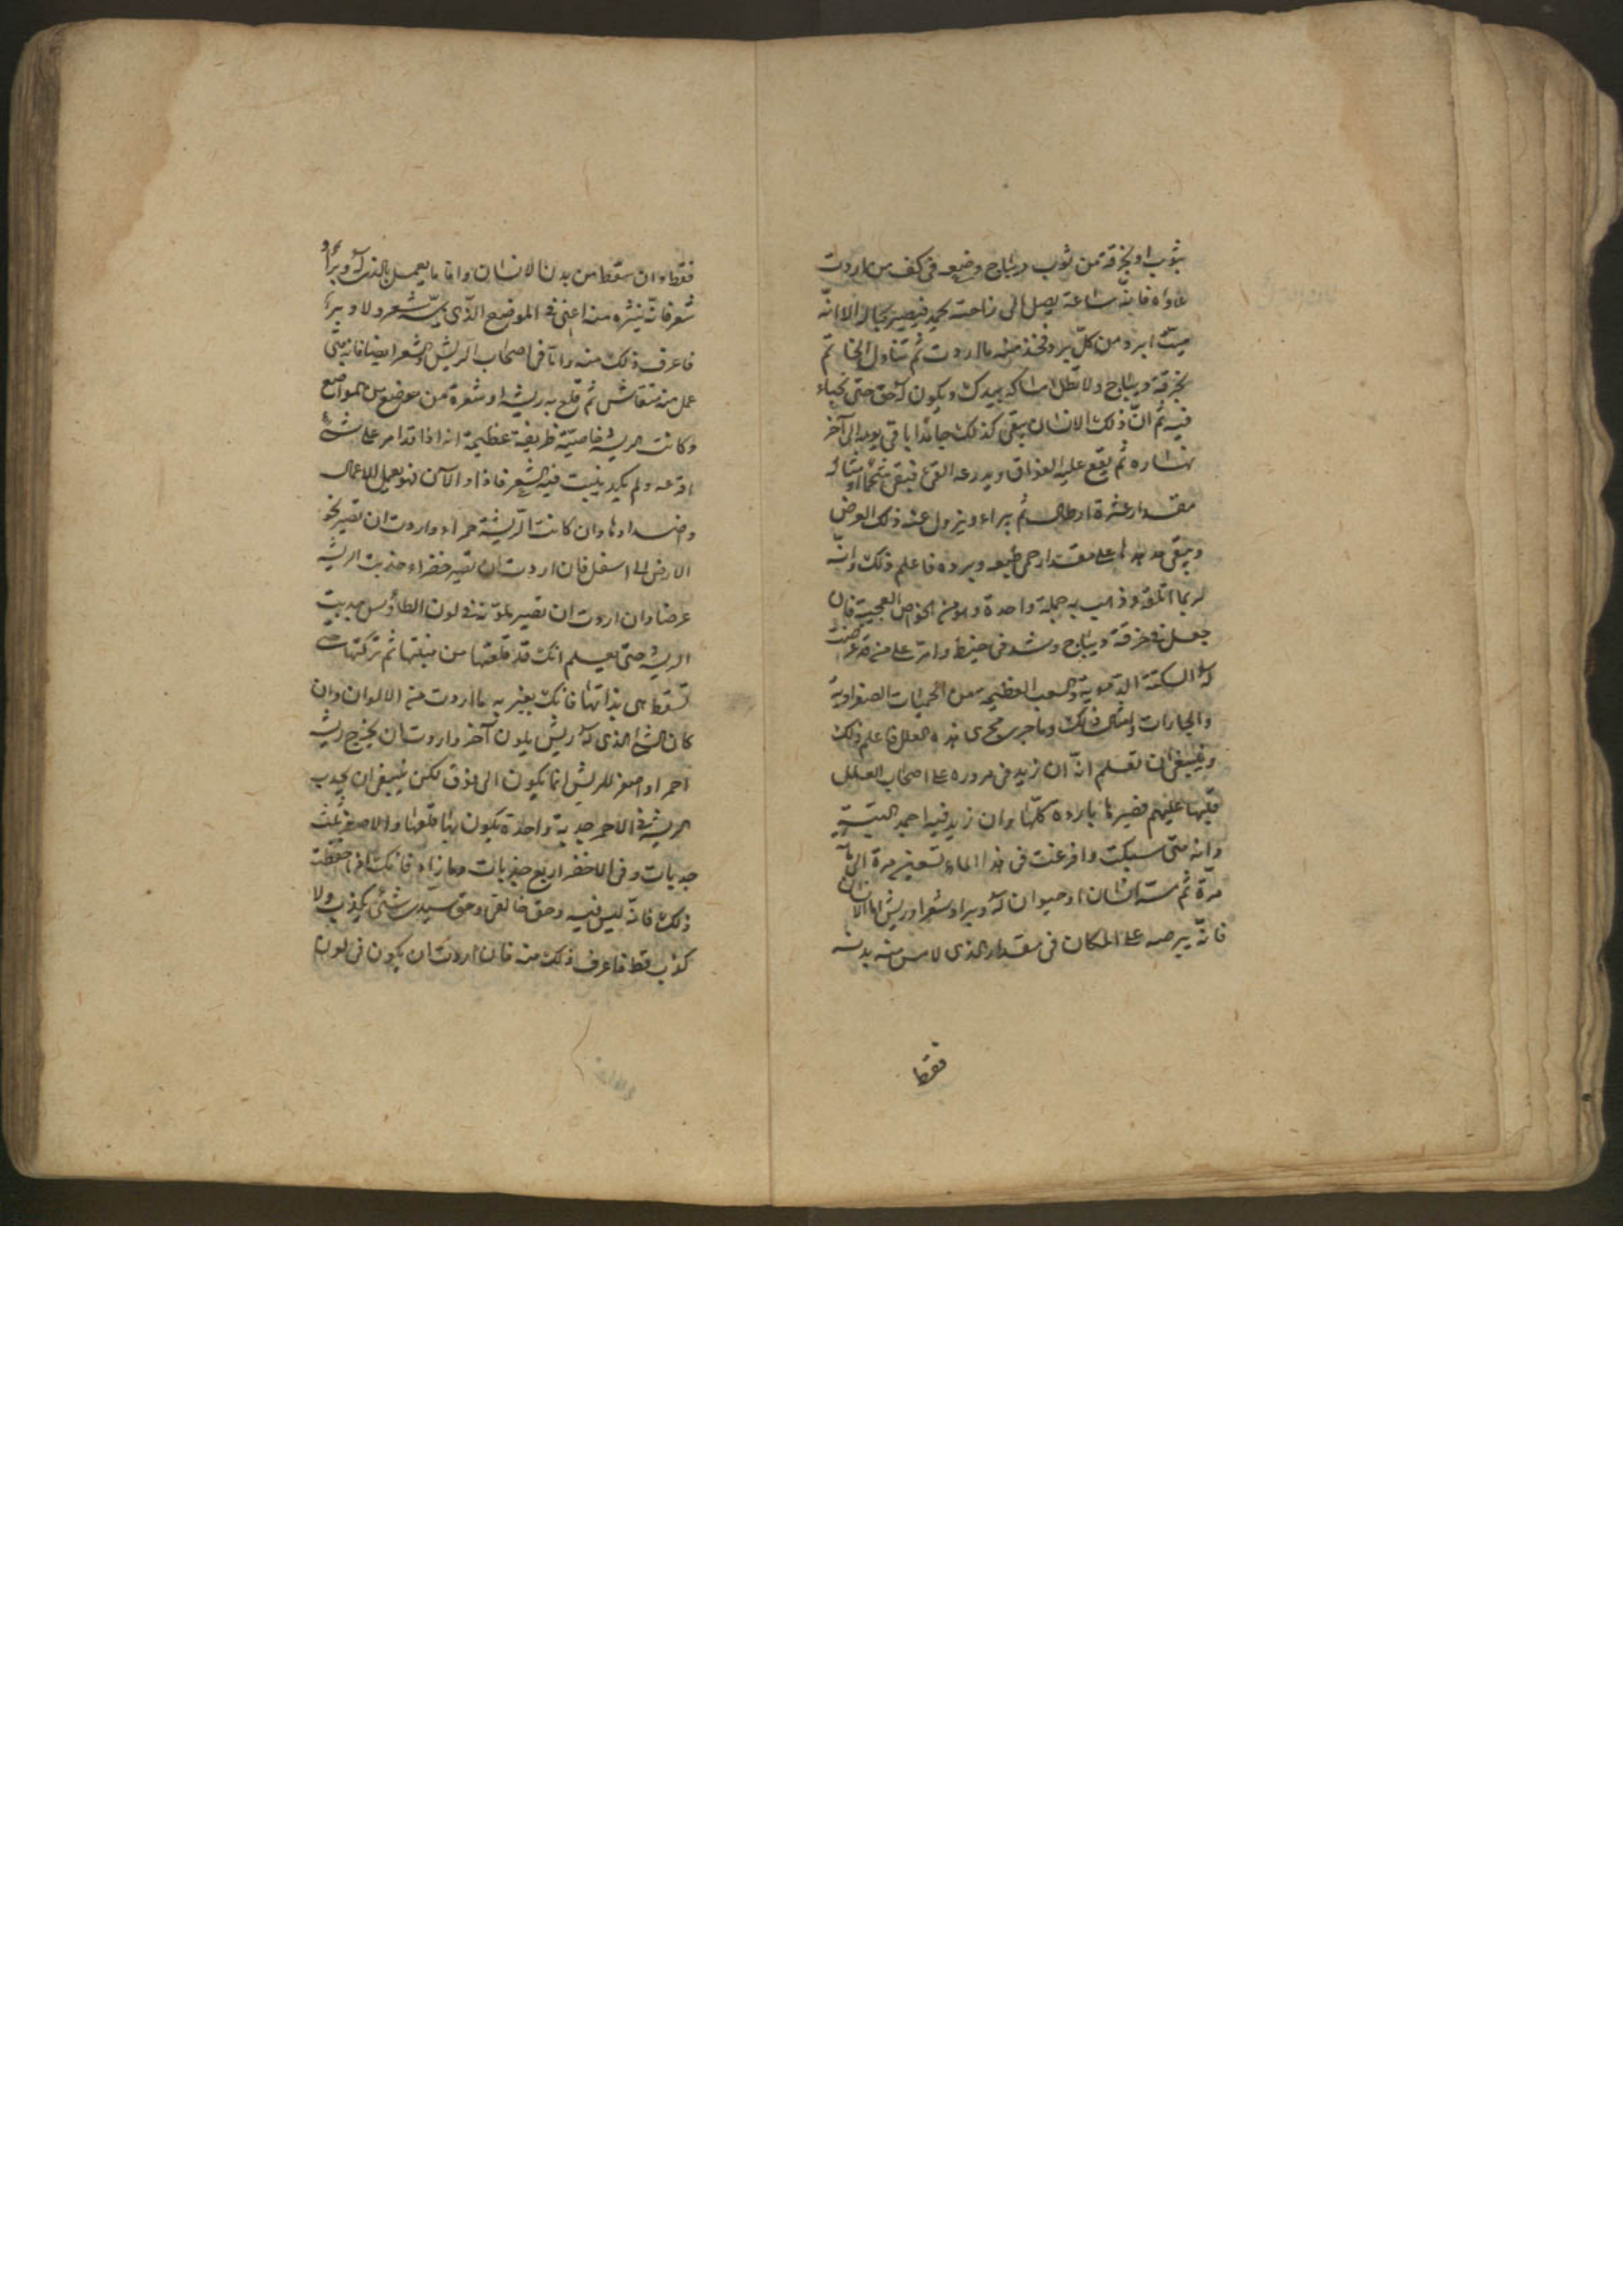 بثوب او بخرقة من ثوب ديباج وضعه فى كف من اردت
عاداه فانه ساعة يصل الى راحته يجمد فيصير بحاله الا انه
ميت ابرد من كل برد فخذ منه ما اردت ثم تناول الخاتم
بخرقة ديباج ولا تطل امساكه بيدك ويكون له حق حتى تخباء
فيه ثم ان ذلك الانسان يبقى كذلك جامدا باقى يومه الى آخر
نهاره ثم يقع عليه الفواق ويدرعه القئ فيبقى
مقدار عشرة ارطال ثم يبراء ويزول عنه ذلك العرض
ويبقى على مقدار حمى طبعه وبرده فاعلم ذلك وانه
لربما اتلفه وذهب به جملة واحدة وهو من الخواص العجيبة فان
جعل فى خرقة ديباج وشد فى خيط وامر على من قد عرضت
له السكتة الدموية والعظيمة من الحميات الصفراوية
والحارات وامثال ذلك وما جرى مجرى هذه العلل فاعلم ذلك
وينبغى ان تعلم انه ان زيد فى مروره على اصحاب العلل
قلبها عليهم فصيرها باردة كلها وان زيد فيه اجمد البتة
وانه متى سبكت وافرغت فى هذا الماء تسعين مرة الى مائة
مرة ثم مست انسان او حيوان له وبر او شعر او ريش اما الانسان
فانه يبرصه على المكان فى مقدار الذى لامس منه بدنه
فقط
فقط وان سقط من بدن الانسان واما ما يعمل بالذى له وبر او
شعر فانه ينثره منه اعنى فى الموضع الذى يمسه شعر ولا وبر
فاعرف ذلك منه واما فى اصحاب الريش والشعر ايضا فانه متى
عمل منه منقاش ثم قلع به ريشة او شعرة من موضع من المواضع
وكانت الريشة خاصية ظريفة عظيمة انه اذا قد امر على شئ
اقرعه ولم يكد ينبت فيه الشعر فاذا الآن فهو يعمل للاعمال
واضدادها وان كانت الريشة حمراء واردت ان تصير نحو
الارض الى اسفل فان اردت ان تصير خضراء جذبت الريشة
عرضا وان اردت ان تصير ملونة فى لون الطاؤس جذبت
الريشة حتى يعلم انك قد قلعتها من منبتها ثم تركتها حتى
تسقط هى بذاتها فانك تغير به ما اردت من الالوان وان
كان الشئ الذى له ريش بلون آخر واردت ان يخرج ريشه
احمر او اصفر للريش انما يكون الى فوق لكن ينبغى ان يجذب
الريشة فى الاحمر جذبة واحدة يكون بها قلعها والاصفر ثلث
جذبات وفى الاخضر اربع جذبات وما زاد فانك اذا حفظت
ذلك فانه ليس فيه وحق خالقى وحق سيدى شئ يكذب ولا
كذب قط فاعرف ذلك منه فان اردت ان يكون فى لون